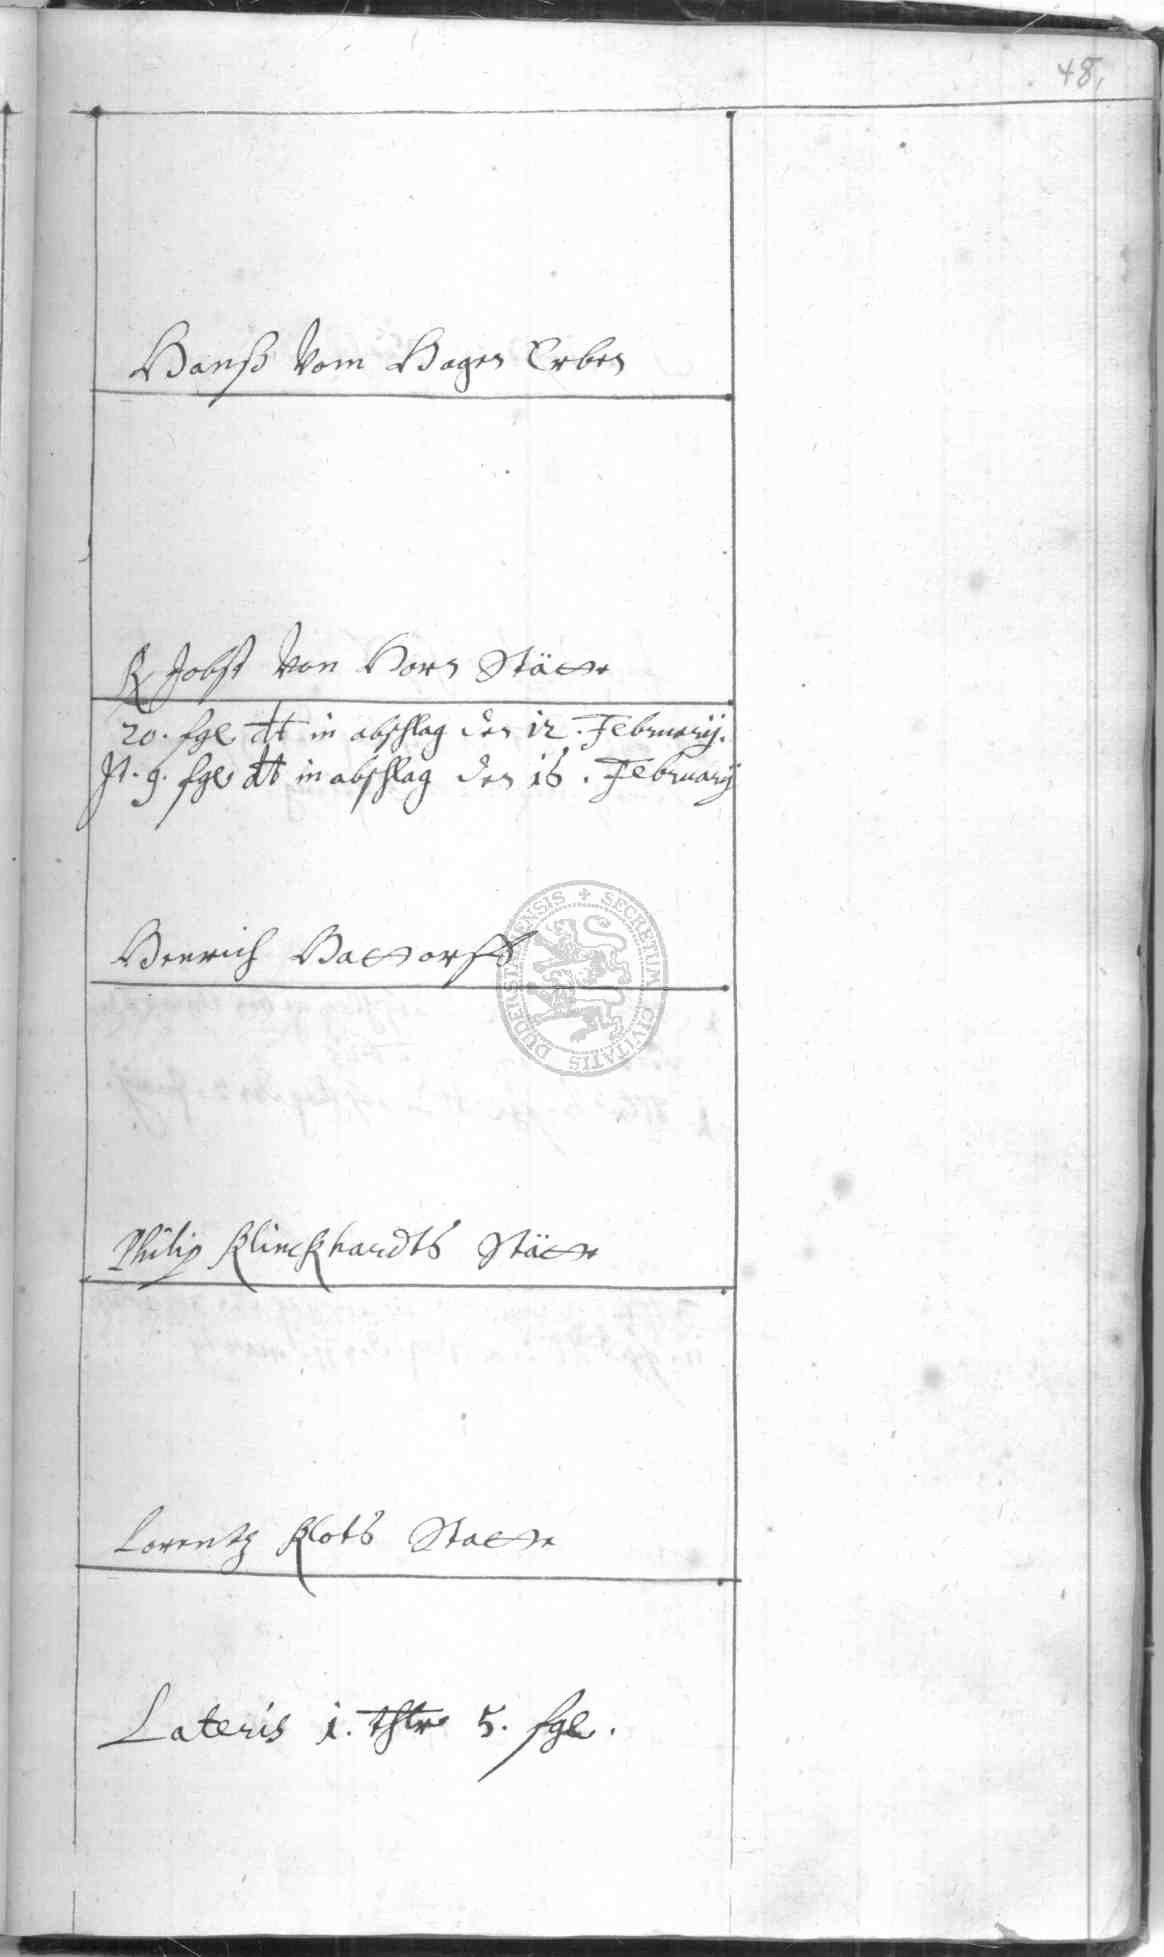 48.
Hanß Vom Hagen Erben
R Jobst Von Horn Stätte
20. fgl dt in abschlag den 12. February.
It. 9. fgl dt in abschlag den 16. February
Henrich Hattorff
SECRETUM CIVITATIS DUDERSTADENSIS
Philip Klinckhardts Stätte
Lorentz Klots Statte
Lateris 1. thlr 5. fgl.